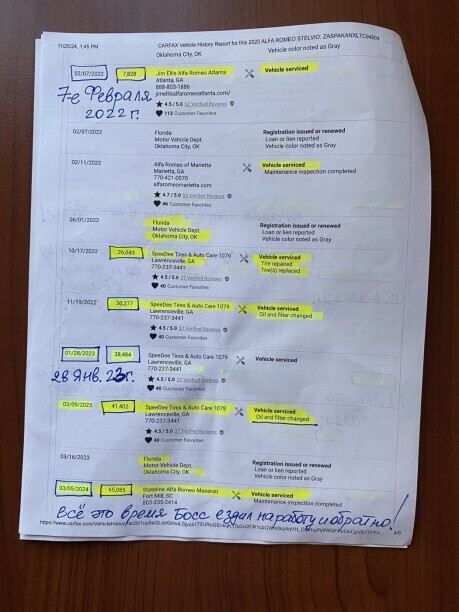 11/25/24, 1:45 PM
CARFAX Vehicle History Report for this 2020 ALFA ROMEO STELVIO: ZASPAKANXL7C94804
Oklahoma City, OK Vehicle color noted as Gray
02/07/2022 7,828 Jim Ellis Alfa Romeo Atlanta Vehicle serviced
Atlanta, GA
888-803-1886
jimellisalfaromeoatlanta.com/
4.5 / 5.0 62 Verified Reviews
113 Customer Favorites
7-е Февраля
2022 г.
02/07/2022 Florida Registration issued or renewed
Motor Vehicle Dept. Loan or lien reported
Oklahoma City, OK Vehicle color noted as Gray
02/11/2022 Alfa Romeo of Marietta Vehicle serviced
Marietta, GA Maintenance inspection completed
770-421-0070
alfaromeomarietta.com
4.7 / 5.0 53 Verified Reviews
46 Customer Favorites
06/01/2022 Florida Registration issued or renewed
Motor Vehicle Dept. Loan or lien reported
Oklahoma City, OK Vehicle color noted as Gray
10/17/2022 26,043 SpeeDee Tires & Auto Care 1079 Vehicle serviced
Lawrenceville, GA Tire repaired
770-237-3441 Tire(s) replaced
4.5 / 5.0 37 Verified Reviews
40 Customer Favorites
11/19/2022 30,277 SpeeDee Tires & Auto Care 1079 Vehicle serviced
Lawrenceville, GA Oil and filter changed
770-237-3441
4.5 / 5.0 37 Verified Reviews
40 Customer Favorites
01/28/2023 38,484 SpeeDee Tires & Auto Care 1079 Vehicle serviced
Lawrenceville, GA
770-237-3441
4.5 / 5.0 37 Verified Reviews
40 Customer Favorites
28 Янв. 23г.
03/09/2023 41,402 SpeeDee Tires & Auto Care 1079 Vehicle serviced
Lawrenceville, GA Oil and filter changed
770-237-3441
4.5 / 5.0 37 Verified Reviews
40 Customer Favorites
03/16/2023 Florida Registration issued or renewed
Motor Vehicle Dept. Loan or lien reported
Oklahoma City, OK Vehicle color noted as Gray
03/05/2024 65,085 Stateline Alfa Romeo Maserati Vehicle serviced
Fort Mill, SC Maintenance inspection completed
803-235-2414
Всё это время Босс ездил на работу и обратно!
4/6